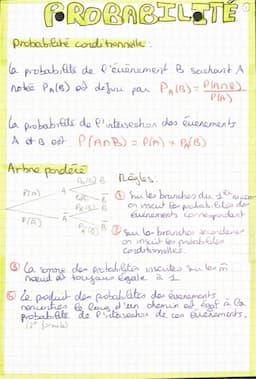 PROBABILITÉ
Probabilité conditionnelle :
La probabilité de l'évènement B sachant A
notée P_A(B) est défini par P_A(B) = P(A∩B)/P(A)
La probabilité de l'intersection des évènements
A et B est P(A∩B) = P(A) × P_A(B)
Arbre pondéré
Règles :
P(A) A P_A(B) B
B̄
P(Ā) Ā B
B̄
① Sur les branches du 1er niveau
on inscrit les probabilités des
évènements correspondant
② Sur les branches secondaires
on inscrit les probabilités
conditionnelles.
③ La somme des probabilités inscrites sur le m̂
nœud est toujours égale à 1
le produit des probabilités des évènements
rencontrés le long d'un chemin est égal à la
probabilité de l'intersection de ces évènements.